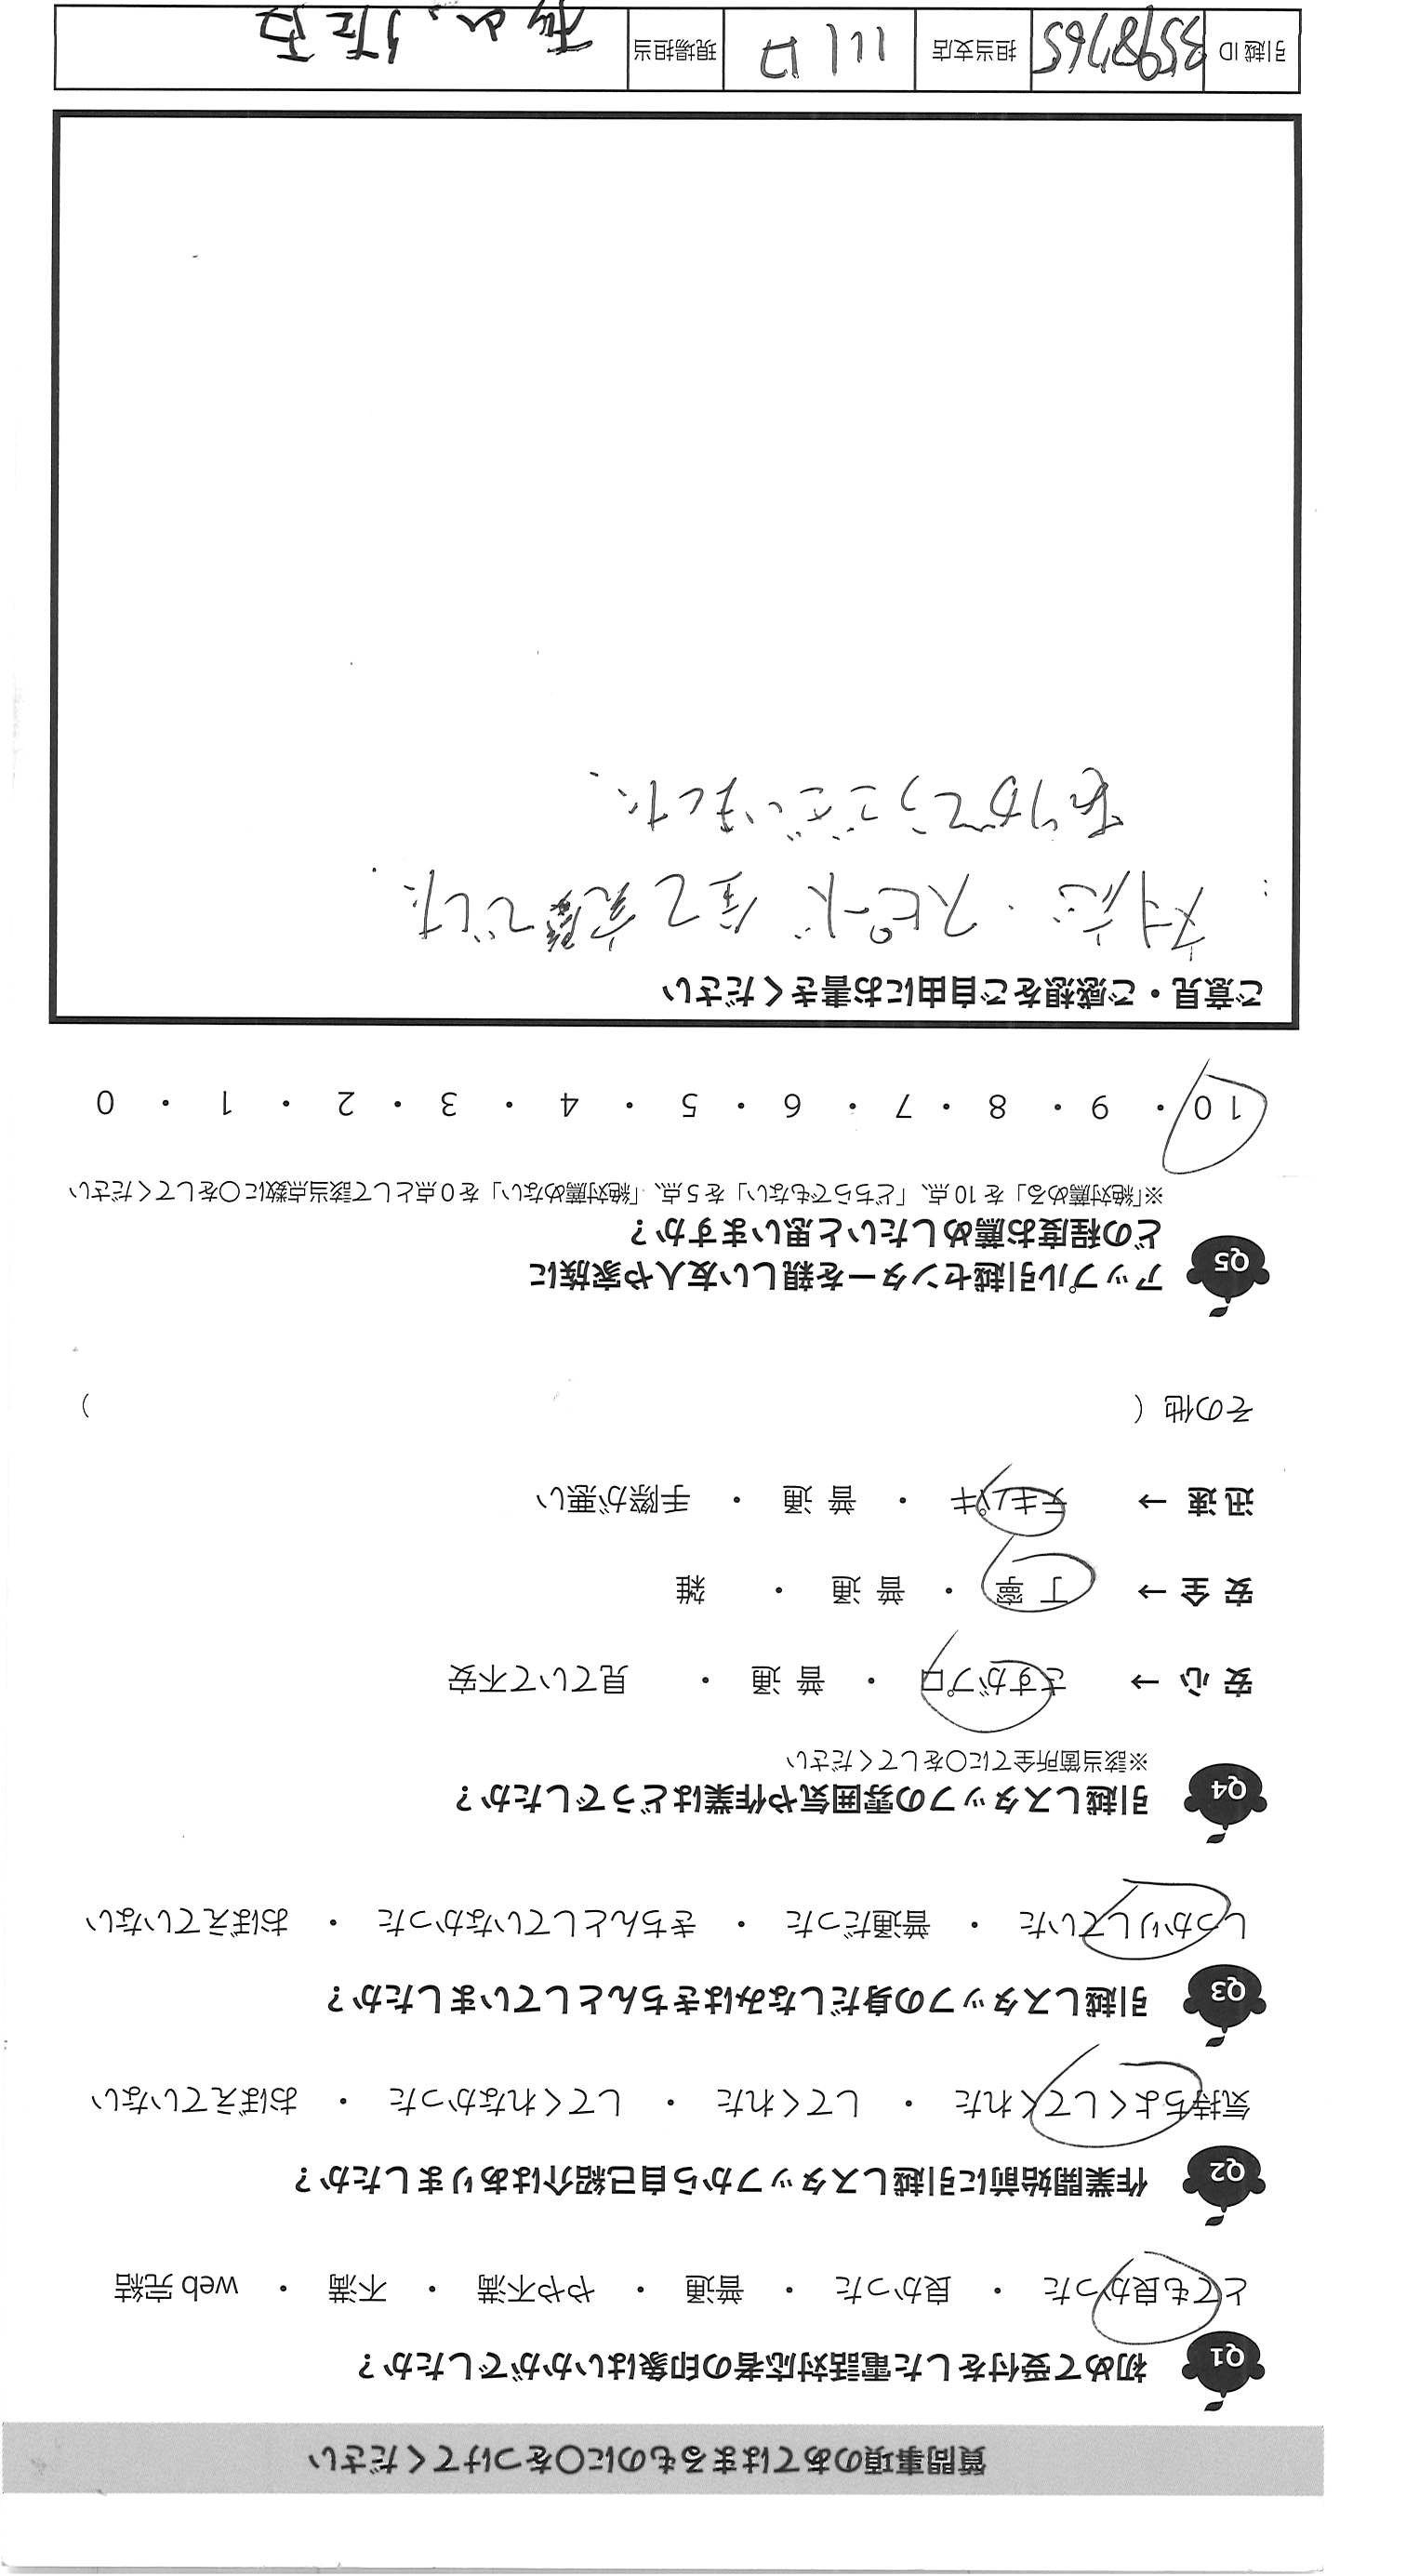 質問事項のあてはまるものに〇をつけてください
Q1 初めて受付をした電話対応者の印象はいかがでしたか？
とても良かった ・ 良かった ・ 普通 ・ やや不満 ・ 不満 ・ web 完結
Q2 作業開始前に引越しスタッフから自己紹介はありましたか？
気持ちよくしてくれた ・ してくれた ・ してくれなかった ・ おぼえていない
Q3 引越しスタッフの身だしなみはきちんとしていましたか？
しっかりしていた ・ 普通だった ・ きちんとしていなかった ・ おぼえていない
Q4 引越しスタッフの雰囲気や作業はどうでしたか？
※該当箇所全てに〇をしてください
安心 → さすがプロ ・ 普通 ・ 見ていて不安
安全 → 丁寧 ・ 普通 ・ 雑
迅速 → テキパキ ・ 普通 ・ 手際が悪い
その他 （ ）
Q5 アップル引越センターを親しい友人や家族に
どの程度お薦めしたいと思いますか？
※「絶対薦める」を 10 点、「どちらでもない」を 5 点、「絶対薦めない」を 0 点として該当点数に〇をしてください
10 ・ 9 ・ 8 ・ 7 ・ 6 ・ 5 ・ 4 ・ 3 ・ 2 ・ 1 ・ 0
ご意見・ご感想をご自由にお書きください
対応・スピード 全て完璧でした.
ありがとうございました.
引越 ID 3598765 担当支店 川口 現場担当